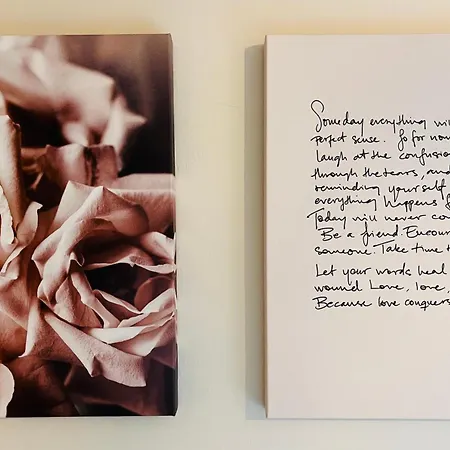 Someday everything wil
perfect sense. So for now
laugh at the confusion
through the tears, and
reminding yourself
everything happens f
Today will never co
Be a friend. Encour
someone. Take time t
Let your words heal
wound. Love, love,
Because love conquers